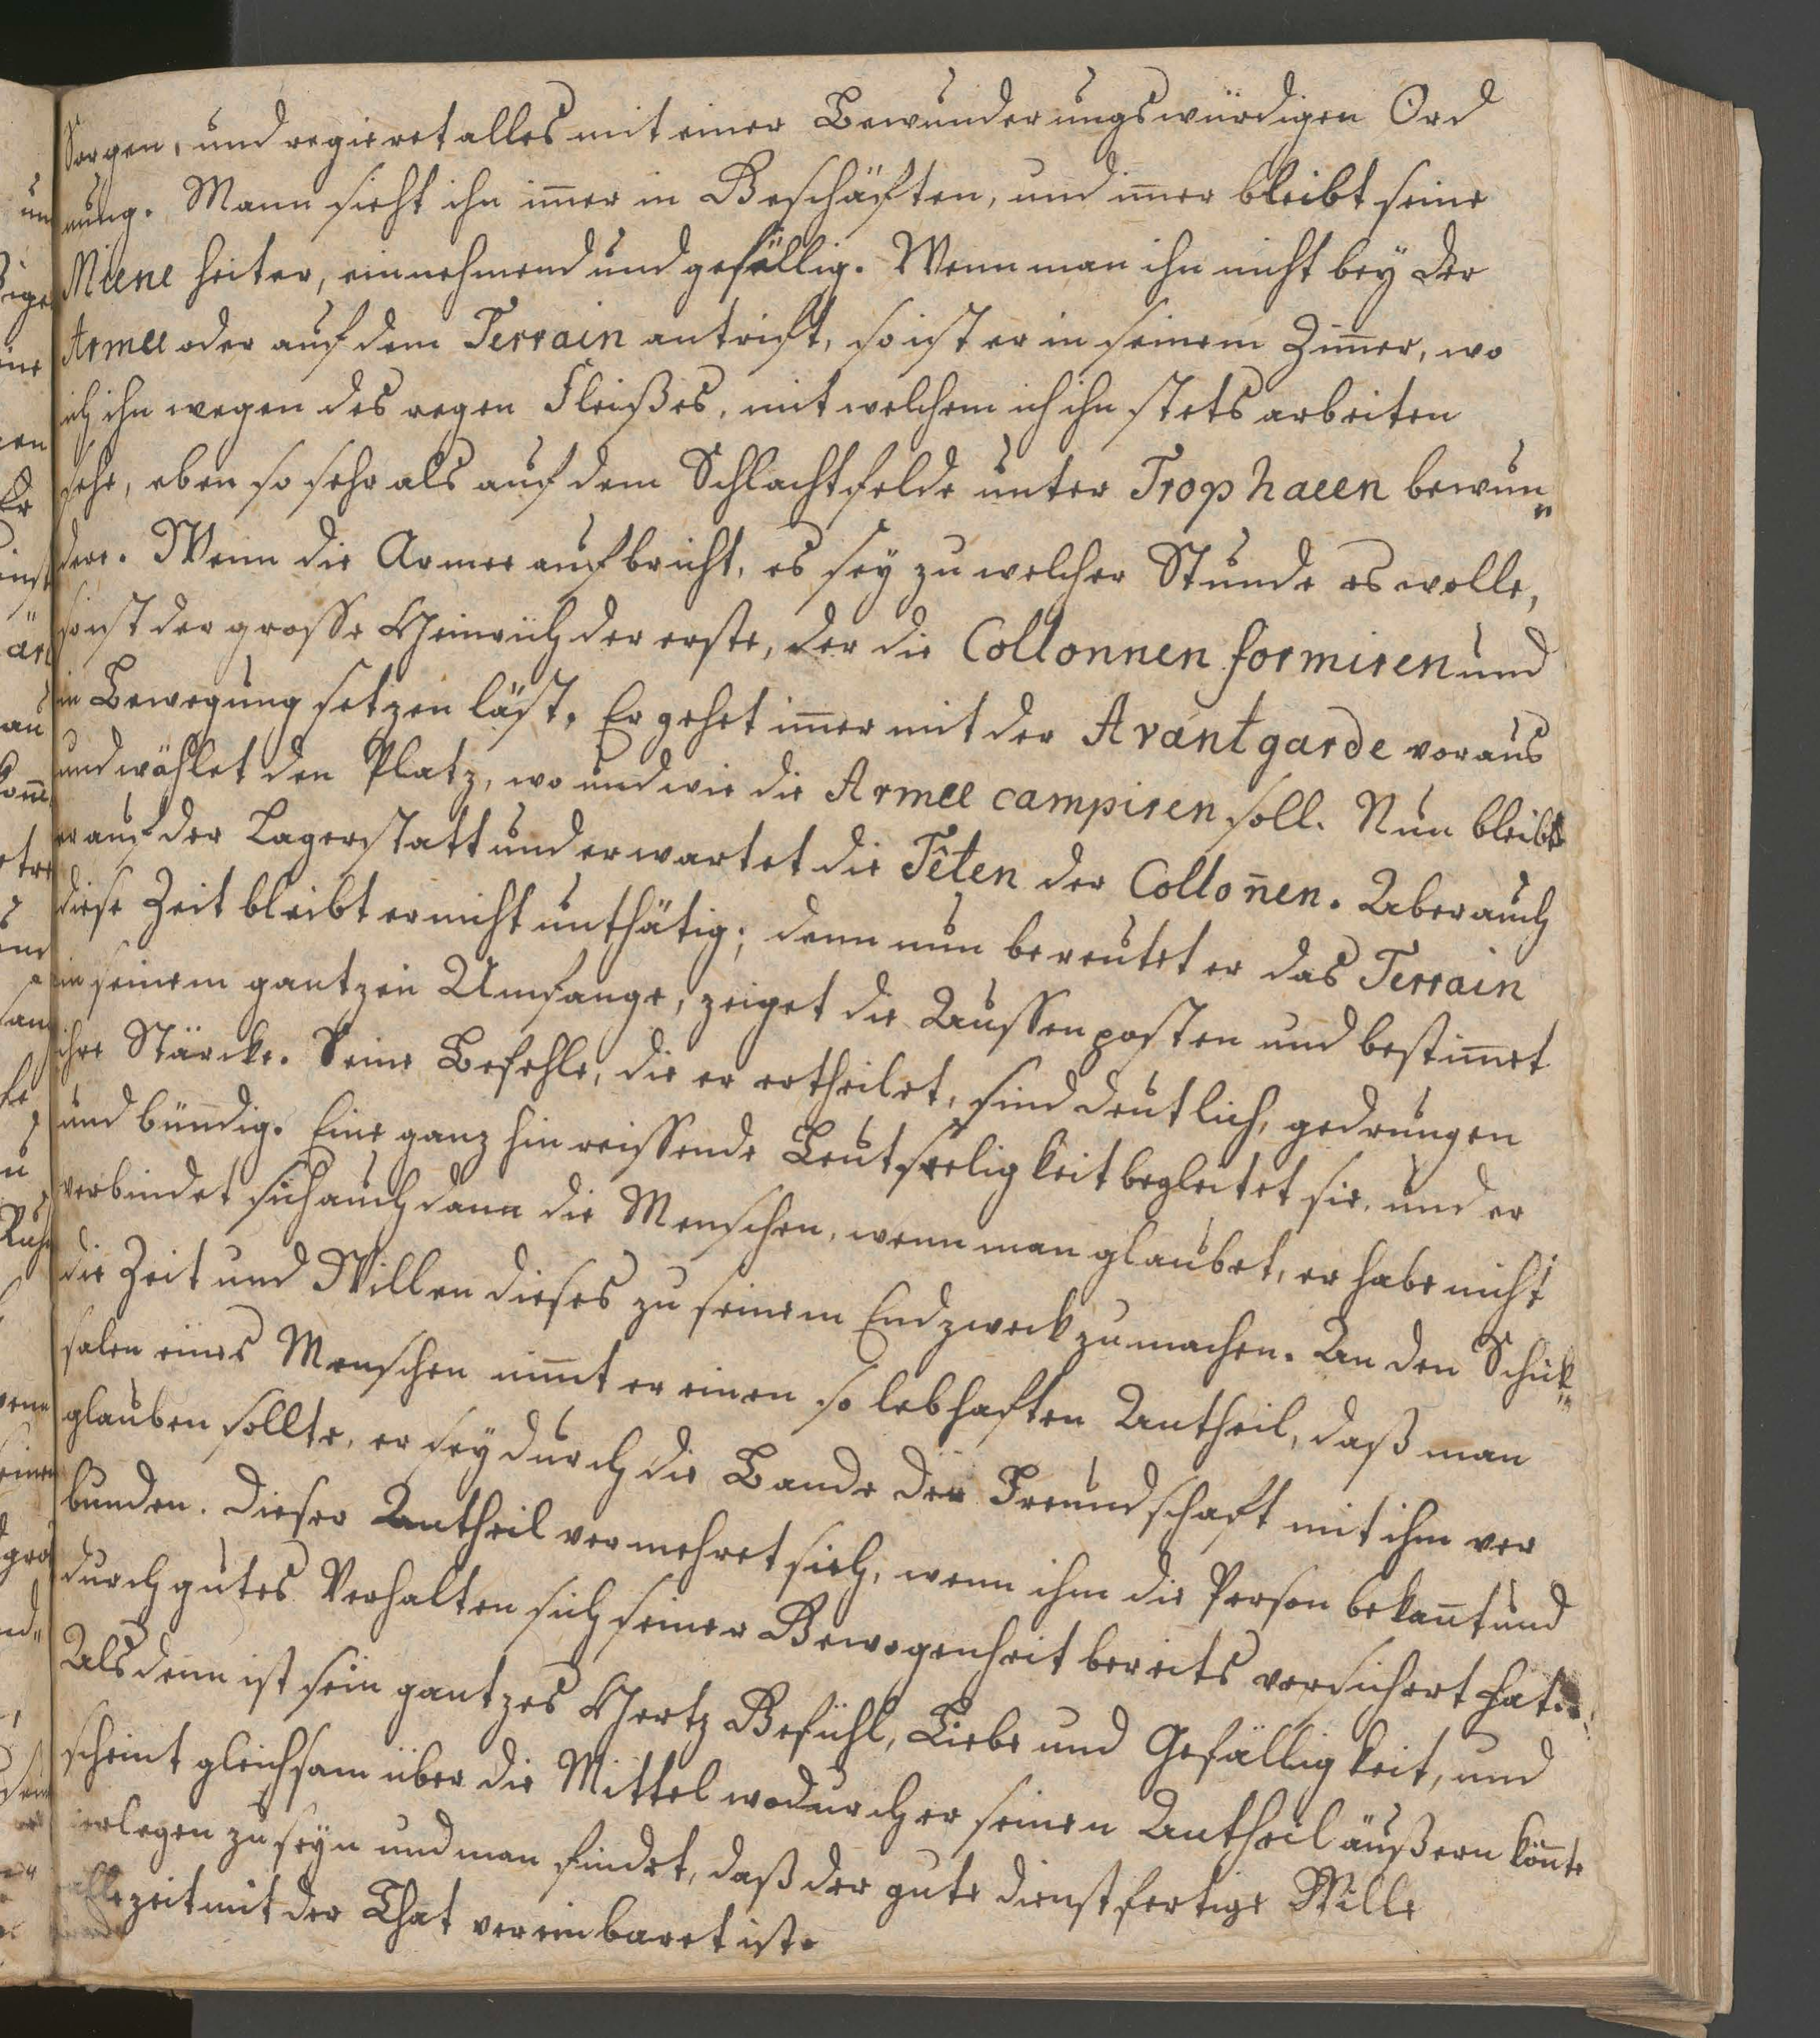 Sorgen, und regieret alles mit einer Bewunderungswürdigen Ord
nung. Mann sieht ihn im̄er in Geschäften, und im̄er bleibt seine
Miene heiter, einnehmend und gefällig. Wenn man ihn nicht bey der
Armee oder auf dem Terrain antrift, so ist er in seinem Zim̄er, wo
ich ihn wegen des regen Fleißes, mit welchem ich ihn stets arbeiten
sehe, eben so sehr als auf dem Schlachtfelde unter Trophaeen bewun„
dere. Wenn die Armee aufbricht, es sey zu welcher Stunde es wolle,
so ist der grosse Heinrich der erste, der die Collonnen formiren und
in Bewegung setzen läst. Er gehet im̄er mit der Avantgarde voraus
und wählet den Platz, wo und wie die Armee campiren soll. Nun bleibt
er auf der Lagerstatt und erwartet die Têten der Collon̄en. Aber auch
diese Zeit bleibt er nicht unthätig; denn nun bereutet er das Terrain
in seinem gantzen Umfange, zeiget die Aussenposten und bestim̄et
ihre Stärcke. Seine Befehle, die er ertheilet, sind deutlich, gedrungen
und bündig. Eine ganz hinreissende Leutseeligkeit begleitet sie, und er
verbindet sich auch dann die Menschen, wenn man glaubet, er habe nicht
die Zeit und Willen dieses zu seinem Endzweck zu machen. An den Schik„
salen eines Menschen nim̄t er einen so lebhaften Antheil, daß man
glauben sollte, er sey durch die Bande der Freundschaft mit ihm ver
bunden. Dieser Antheil vermehret sich, wenn ihm die Person bekan̄t und
durch gutes Verhalten sich seiner Gewogenheit bereits versichert hat.
Alsdenn ist sein gantzes Hertz Gefühl, Liebe und Gefälligkeit, und
scheint gleichsam über die Mittel wodurch er seinen Antheil äußern kön̄te
verlegen zu seyn und man findet, daß der gute dienstfertige Wille
allezeit mit der That vereinbaret ist.